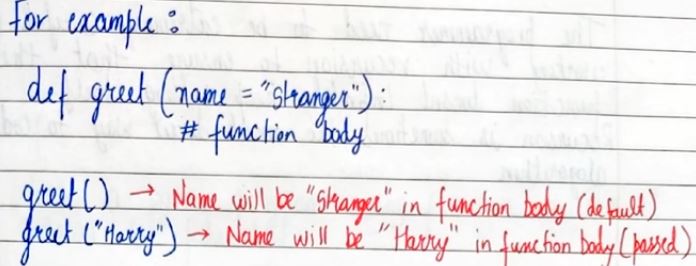 for example :
def greet (name = "Stranger") :
# function body
greet() → Name will be "Stranger" in function body (default)
greet ("Harry") → Name will be "Harry" in function body (passed)